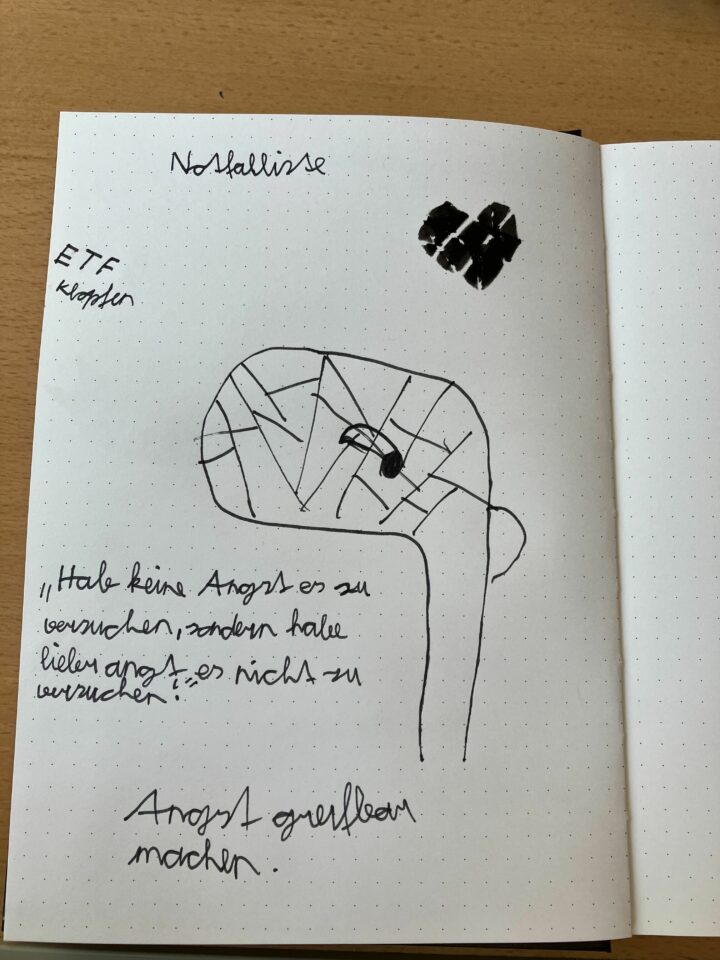 Notfalliste
ETF
Klopfen
„Hab keine Angst es zu
versuchen, sondern habe
lieber angst, es nicht zu
versuchen!“
Angst greifbar
machen.